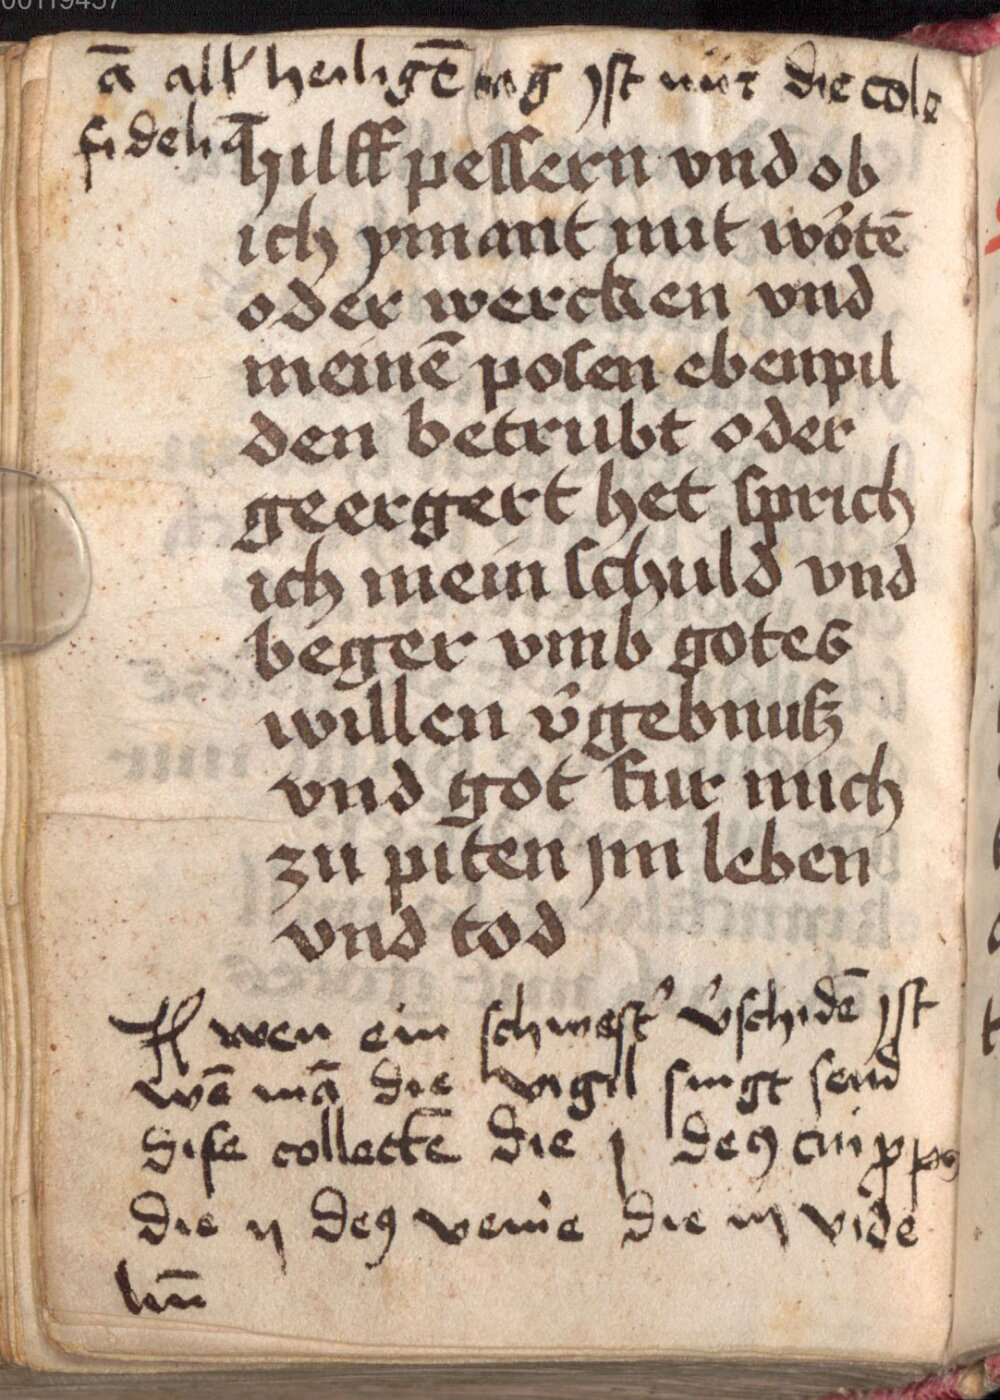 00119457
ā all heiligē tag ıst nur die cole
fideliū
hilff pessern vnd ob
ich ymant mit wo᷑tē
oder wercken vnd
meinē posen ebenpil
den betrubt oder
geergert het sprich
ich mein schuld vnd
beger vmb gotes
willen v᷑gebnuß
vnd got fur mich
zu piten jm leben
vnd tod
wen ein schwest᷑ v᷑schidē jst
wē mā die vigil singt send
dise collectē die j deꝰ cui ꝓp
die ij deꝰ venie die iij vide